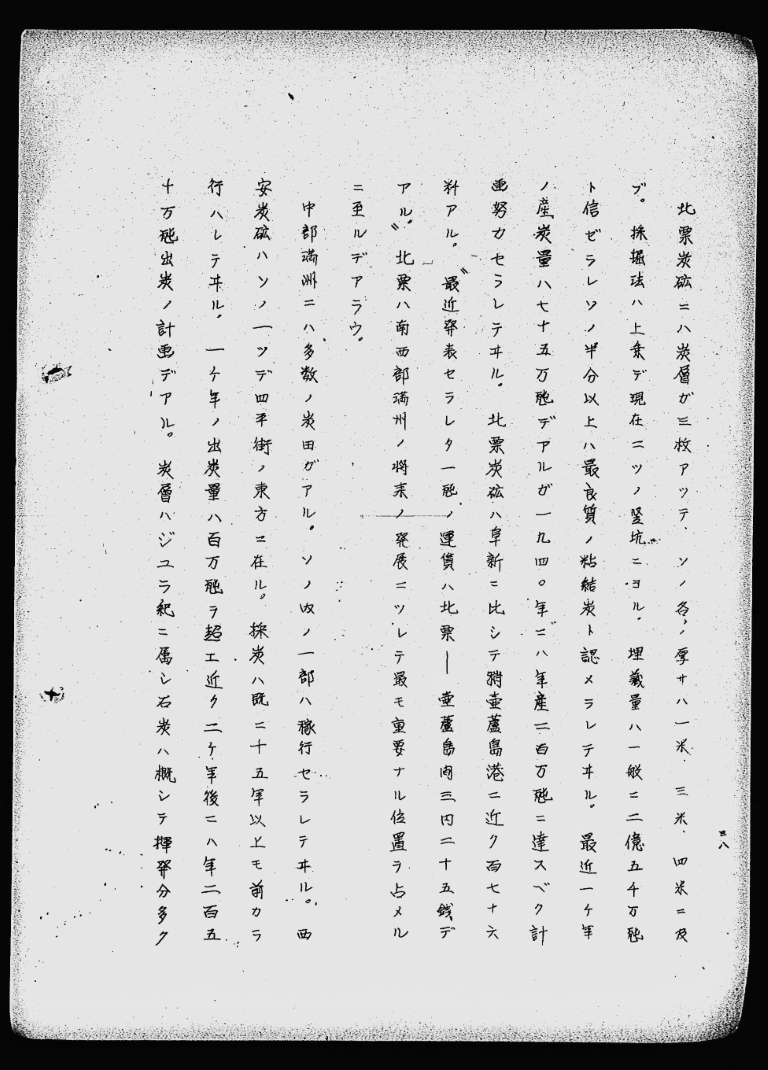 三八
北票炭砿ニハ炭層ガ三枚アツテ、ソノ各々ノ厚サハ一米、三米、四米ニ及
ブ。採掘法ハ上乗デ現在二ツノ竪坑ニヨル。埋蔵量ハ一般ニ二億五千万瓲
ト信ゼラレソノ半分以上ハ最良質ノ粘結炭ト認メラレテヰル。最近一ケ年
ノ産炭量ハ七十五万瓲デアルガ一九四〇年ニハ年産二百万瓲ニ達スベク計
画努力セラレテヰル。北票炭砿ハ阜新ニ比シテ稍壺蘆島港ニ近ク百七十六
粁アル。最近発表セラレタ一瓲ノ運賃ハ北票—壺蘆島間三円二十五銭デ
アル。北票ハ南西部満州ノ将来ノ発展ニツレテ最モ重要ナル位置ヲ占メル
ニ至ルデアラウ。
中部満洲ニハ多数ノ炭田ガアル。ソノ内ノ一部ハ稼行セラレテヰル。西
安炭砿ハソノ一ツデ四平街ノ東方ニ在ル。採炭ハ既ニ十五年以上モ前カラ
行ハレテヰル。一ケ年ノ出炭量ハ百万瓲ヲ超エ近ク二ケ年後ニハ年二百五
十万瓲出炭ノ計画デアル。炭層ハジユラ紀ニ属シ石炭ハ概シテ揮発分多ク